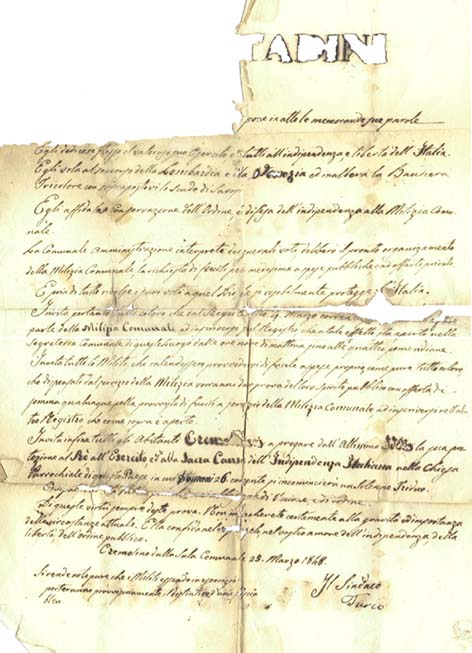 TADINI
pone in atto le memorande sue parole
Egli dedica se stesso il valoroso suo Esercito e tutti all'indipendenza e libertà dell'Italia.
Egli vola al soccorso della Lombardia e della Venezia ed inalbera la Bandiera
Tricolore con sovrapostovi lo Scudo di Savoja
Egli affida la conservazione dell'Ordine, e difesa dell'indipendenza alla Milizia Comu-
nale.
La Comunale Amministrazione interprete dei generali voti deliberò il pronto organizzamento
della Milizia Comunale, la richiesta di fucili per a spese pubbliche ed offerte private.
E pria di tutto rivolse i suoi voti a quel Dio che visibilmente protegge l'Italia.
Invita pertanto tutti coloro che sal Regio 4 Marzo
parte della Milizia Comunale ad inscriversi sul Registro che a tale effetto sta aperto nella
Segreteria Comunale di questo luogo dalle ore nove di mattina sino alle quattro pomeridiane.
Invita tutti li Militi, che intendessero provvedersi di fucile a spese proprie, come pure tutti coloro
che dispensati in prezzo della Milizia vorranno dar prova del loro spirito pubblico con offerta di
somma qualunque per la provvista di fucili a servizio della Milizia Comunale ad inscriversi nell'al-
tro Registro che come sopra è aperto.
Invita infine tutti gli Abitanti a pregare dall'Altissimo la sua pro-
tezione al Rè all'Esercito ed alla Sacra Causa dell'Indipendenza Italiana nella Chiesa
Parrocchiale di questo Paese in cui domani 26 corrente si incomincierà un solenne Triduo.
di Unione, e di ordine.
Di queste virtù sempre deste prova. Non mancherete certamente alla gravità ed importanza
delle circostanze attuali. Ella confida nel vostro amore dell'indipendenza della
libertà dell'ordine pubblico.
Cremolino dalla Sala Comunale 25. Marzo 1848.
Si rende noto pure che i Militi essendone
porteranno provvisoriamente
Il Sindaco
Turco